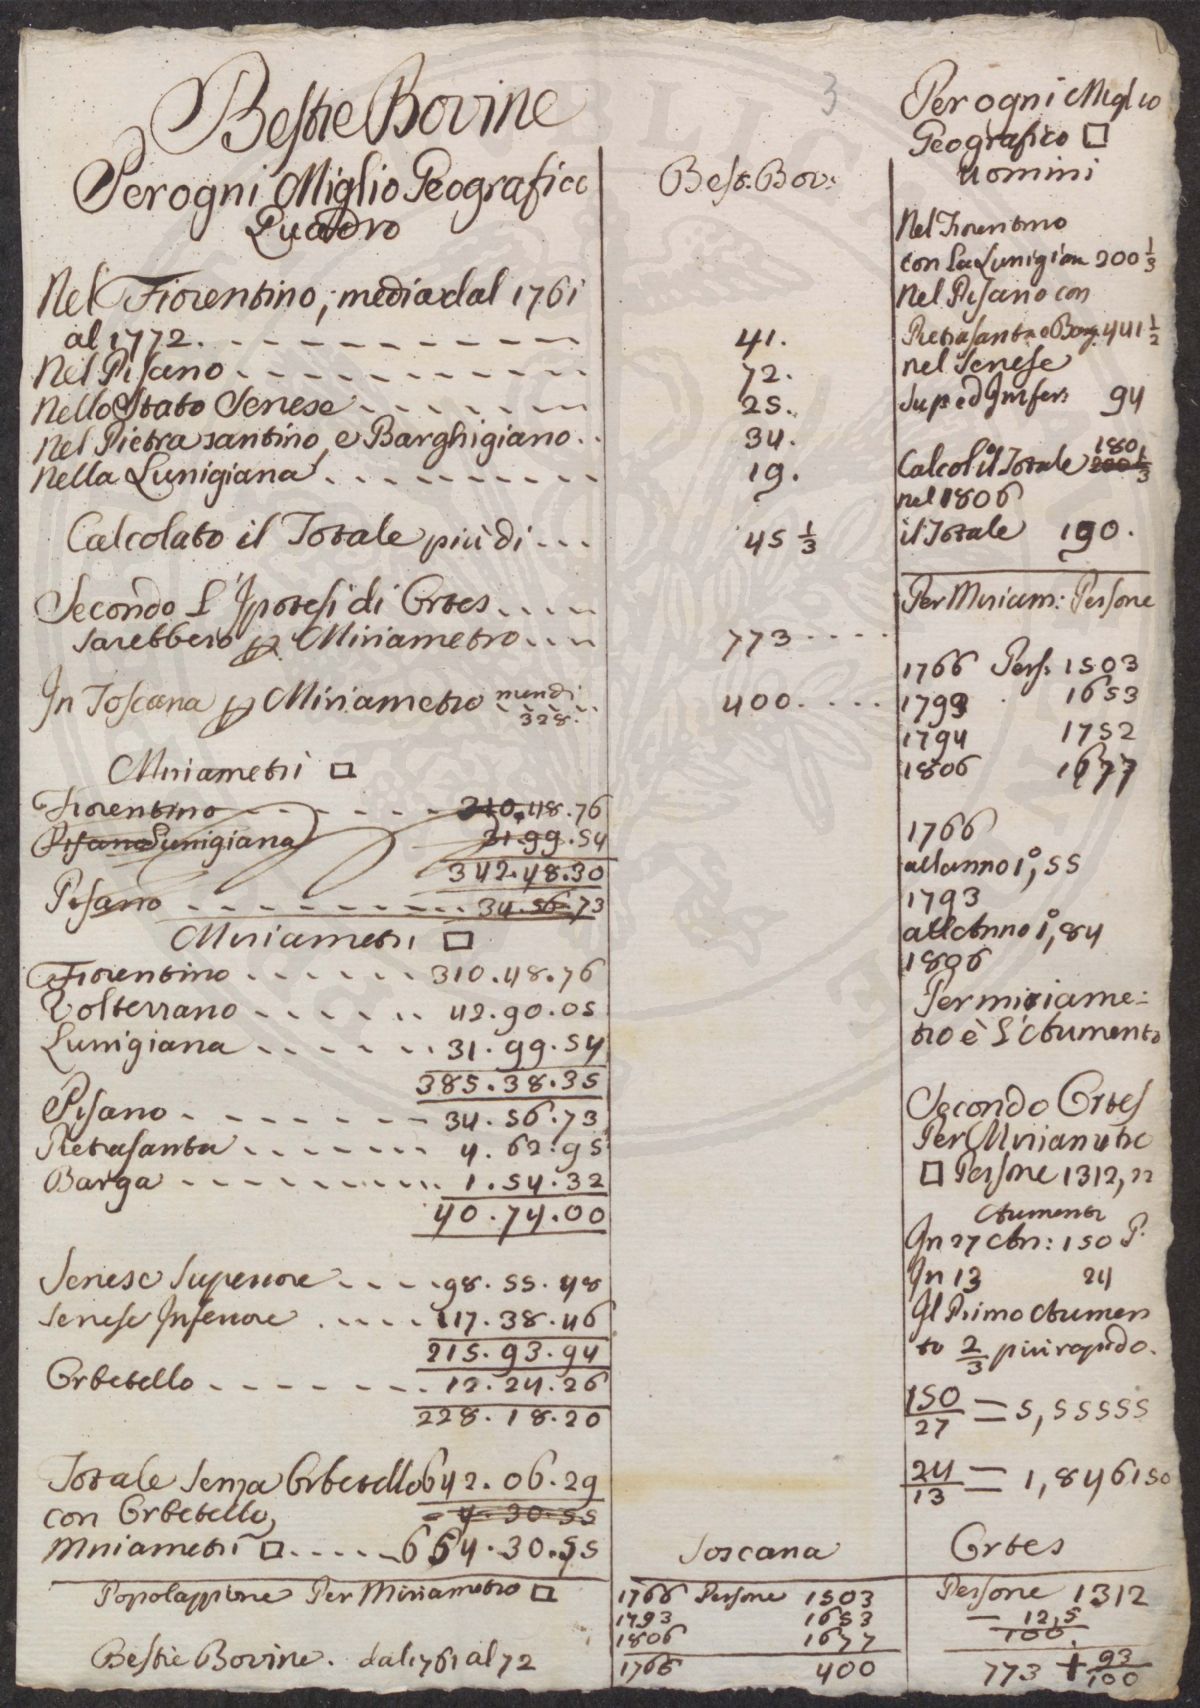 3
Bestie Bovine
Per ogni Miglio Geografico
Quadro
Best. Bov:
Nel Fiorentino, media dal 1761
al 1772. 41.
Nel Pisano 72.
Nello Stato Senese 25.
Nel Pietrasantino, e Barghigiano 34.
Nella Lunigiana 19.
Calcolato il Totale più di 45 1/3
Secondo L'Ipotesi di Ortes
sarebbero p Miriametro 773
In Toscana p Miriametro 400.
328.
Miriametri □
Fiorentino 310.48.76
Pisano Lunigiana 31.99.54
342.48.30
Pisano 34.56.73
Miriametri □
Fiorentino 310.48.76
Volterrano 42.90.05
Lunigiana 31.99.54
385.38.35
Pisano 34.56.73
Pietrasanta 4.62.95
Barga 1.54.32
40.74.00
Senese Superiore 98.55.48
Senese Inferiore 117.38.46
215.93.94
Orbetello 12.24.26
228.18.20
Totale Senza Orbetello 642.06.29
con Orbetello, 4.30.55
Miriametri □ 654.30.55
Popolazzione Per Miriametro □
Bestie Bovine. dal 1761 al 72
Toscana
1766 Persone 1503
1793 1653
1806 1677
1766 400
Per ogni Miglio
Geografico □
Uomini
Nel Fiorentino
con La Lunigian 200 1/3
Nel Pisano con
Pietrasanta e Barg. 441 1/2
nel Senese
Sup ed Infer: 94
180
Calcolº il Totale 200 1/3
nel 1806
il Totale 190.
Per Miriam: Persone
1766 Pers: 1503
1793 1653
1794 1752
1806 1677
1766
all anno 1º,55
1793
all Anno 1º,84
1806
Per miriame:
tro è L'Aumento
Secondo Ortes
Per Miriametro
□ Persone 1312,22
Aumento
In 27 An: 150 P.
In 13 24
Il Primo Aumen
to 2/3 più rapido.
150/27 = 5,55555
24/13 = 1,846150
Ortes
Persone 1312
12,5/100
773 + 93/100